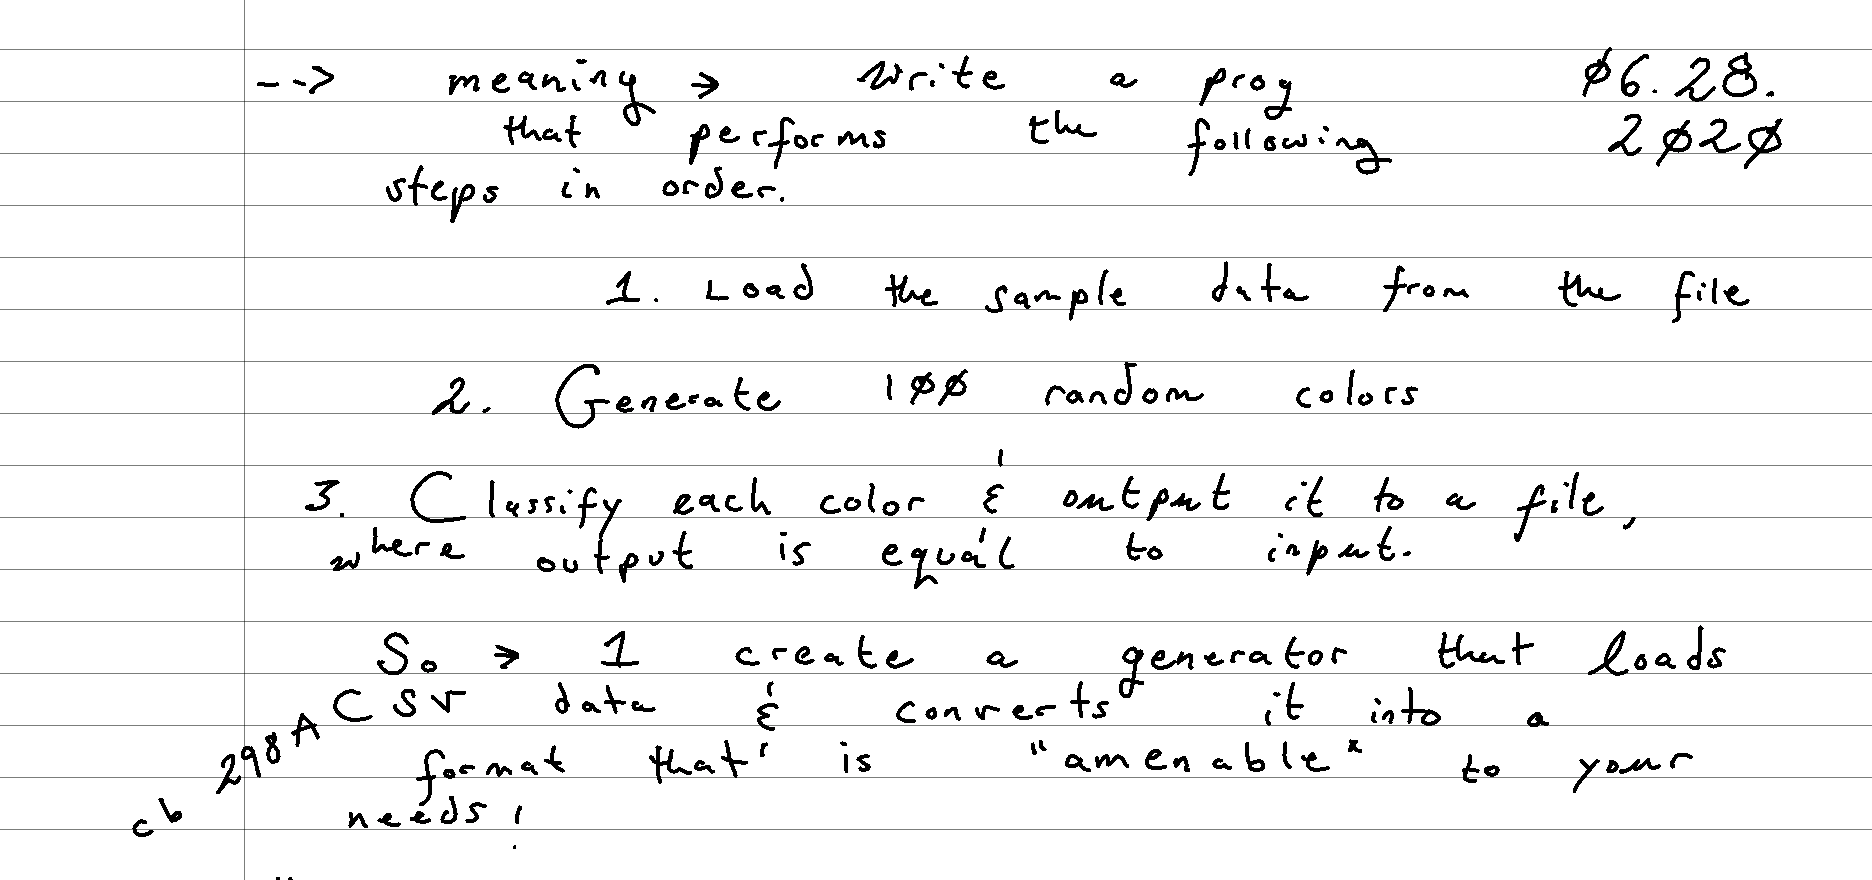 --> meaning → write a prog ø6.28.
that performs the following 2ø2ø
steps in order.
1. Load the sample data from the file
2. Generate 1øø random colors
3. Classify each color & output it to a file,
where output is equal to input.
So → 1 create a generator that loads
CSV data & converts it into a
format that is "amenable" to your
needs!
cb 298A